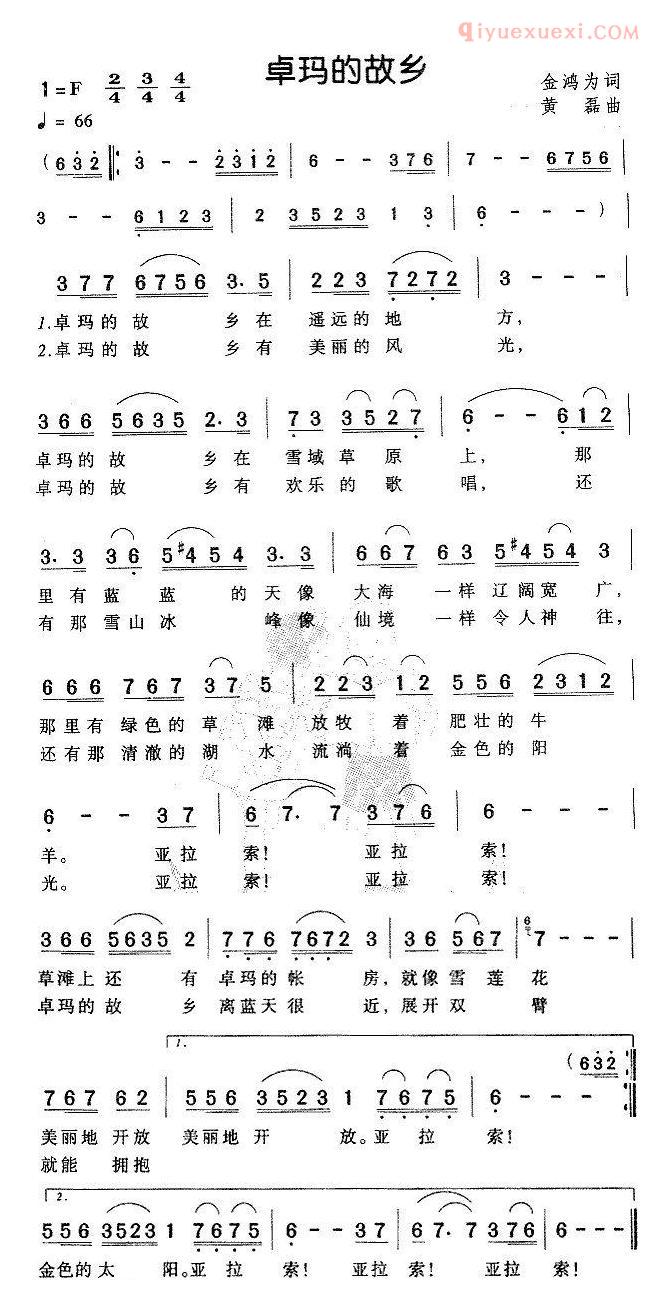 qiyuexuexi.com
卓玛的故乡
1=F 2/4 3/4 4/4
金鸿为词
♩= 66
黄 磊曲
(6 3 2 ‖: 3 - - 2 3 1 2 | 6 - - 3 7 6 | 7 - - 6 7 5 6 |
3 - - 6 1 2 3 | 2 3 5 2 3 1 3 | 6 - - - ) |
3 7 7 6 7 5 6 3. 5 | 2 2 3 7 2 7 2 | 3 - - - |
1.卓玛的故 乡在 遥远的地 方,
2.卓玛的故 乡有 美丽的风 光,
3 6 6 5 6 3 5 2. 3 | 7 3 3 5 2 7 | 6 - - 6 1 2 |
卓玛的故 乡在 雪域草原 上, 那
卓玛的故 乡有 欢乐的歌 唱, 还
3. 3 3 6 5 #4 5 4 3. 3 | 6 6 7 6 3 5 #4 5 4 3 |
里有蓝 蓝 的天像 大海 一样辽阔宽 广,
有那雪山冰 峰像 仙境 一样令人神 往,
6 6 6 7 6 7 3 7 5 | 2 2 3 1 2 5 5 6 2 3 1 2 |
那里有绿色的草 滩 放牧 着 肥壮的牛
还有那清澈的湖 水 流淌 着 金色的阳
6 - - 3 7 | 6 7. 7 3 7 6 | 6 - - - |
羊。 亚拉 索! 亚拉 索!
光。 亚拉 索! 亚拉 索!
3 6 6 5 6 3 5 2 | 7 7 6 7 6 7 2 3 | 3 6 5 6 7 | 6 7 - - - |
草滩上还 有 卓玛的帐 房,就像雪莲花
卓玛的故 乡 离蓝天很 近,展开双 臂
1.
(6 3 2
7 6 7 6 2 | 5 5 6 3 5 2 3 1 7 6 7 5 | 6 - - - :‖
美丽地开放 美丽地开 放。亚拉 索!
就能 拥抱
2.
5 5 6 3 5 2 3 1 7 6 7 5 | 6 - - 3 7 | 6 7. 7 3 7 6 | 6 - - - ‖
金色的太 阳。亚拉 索! 亚拉 索! 亚拉 索!